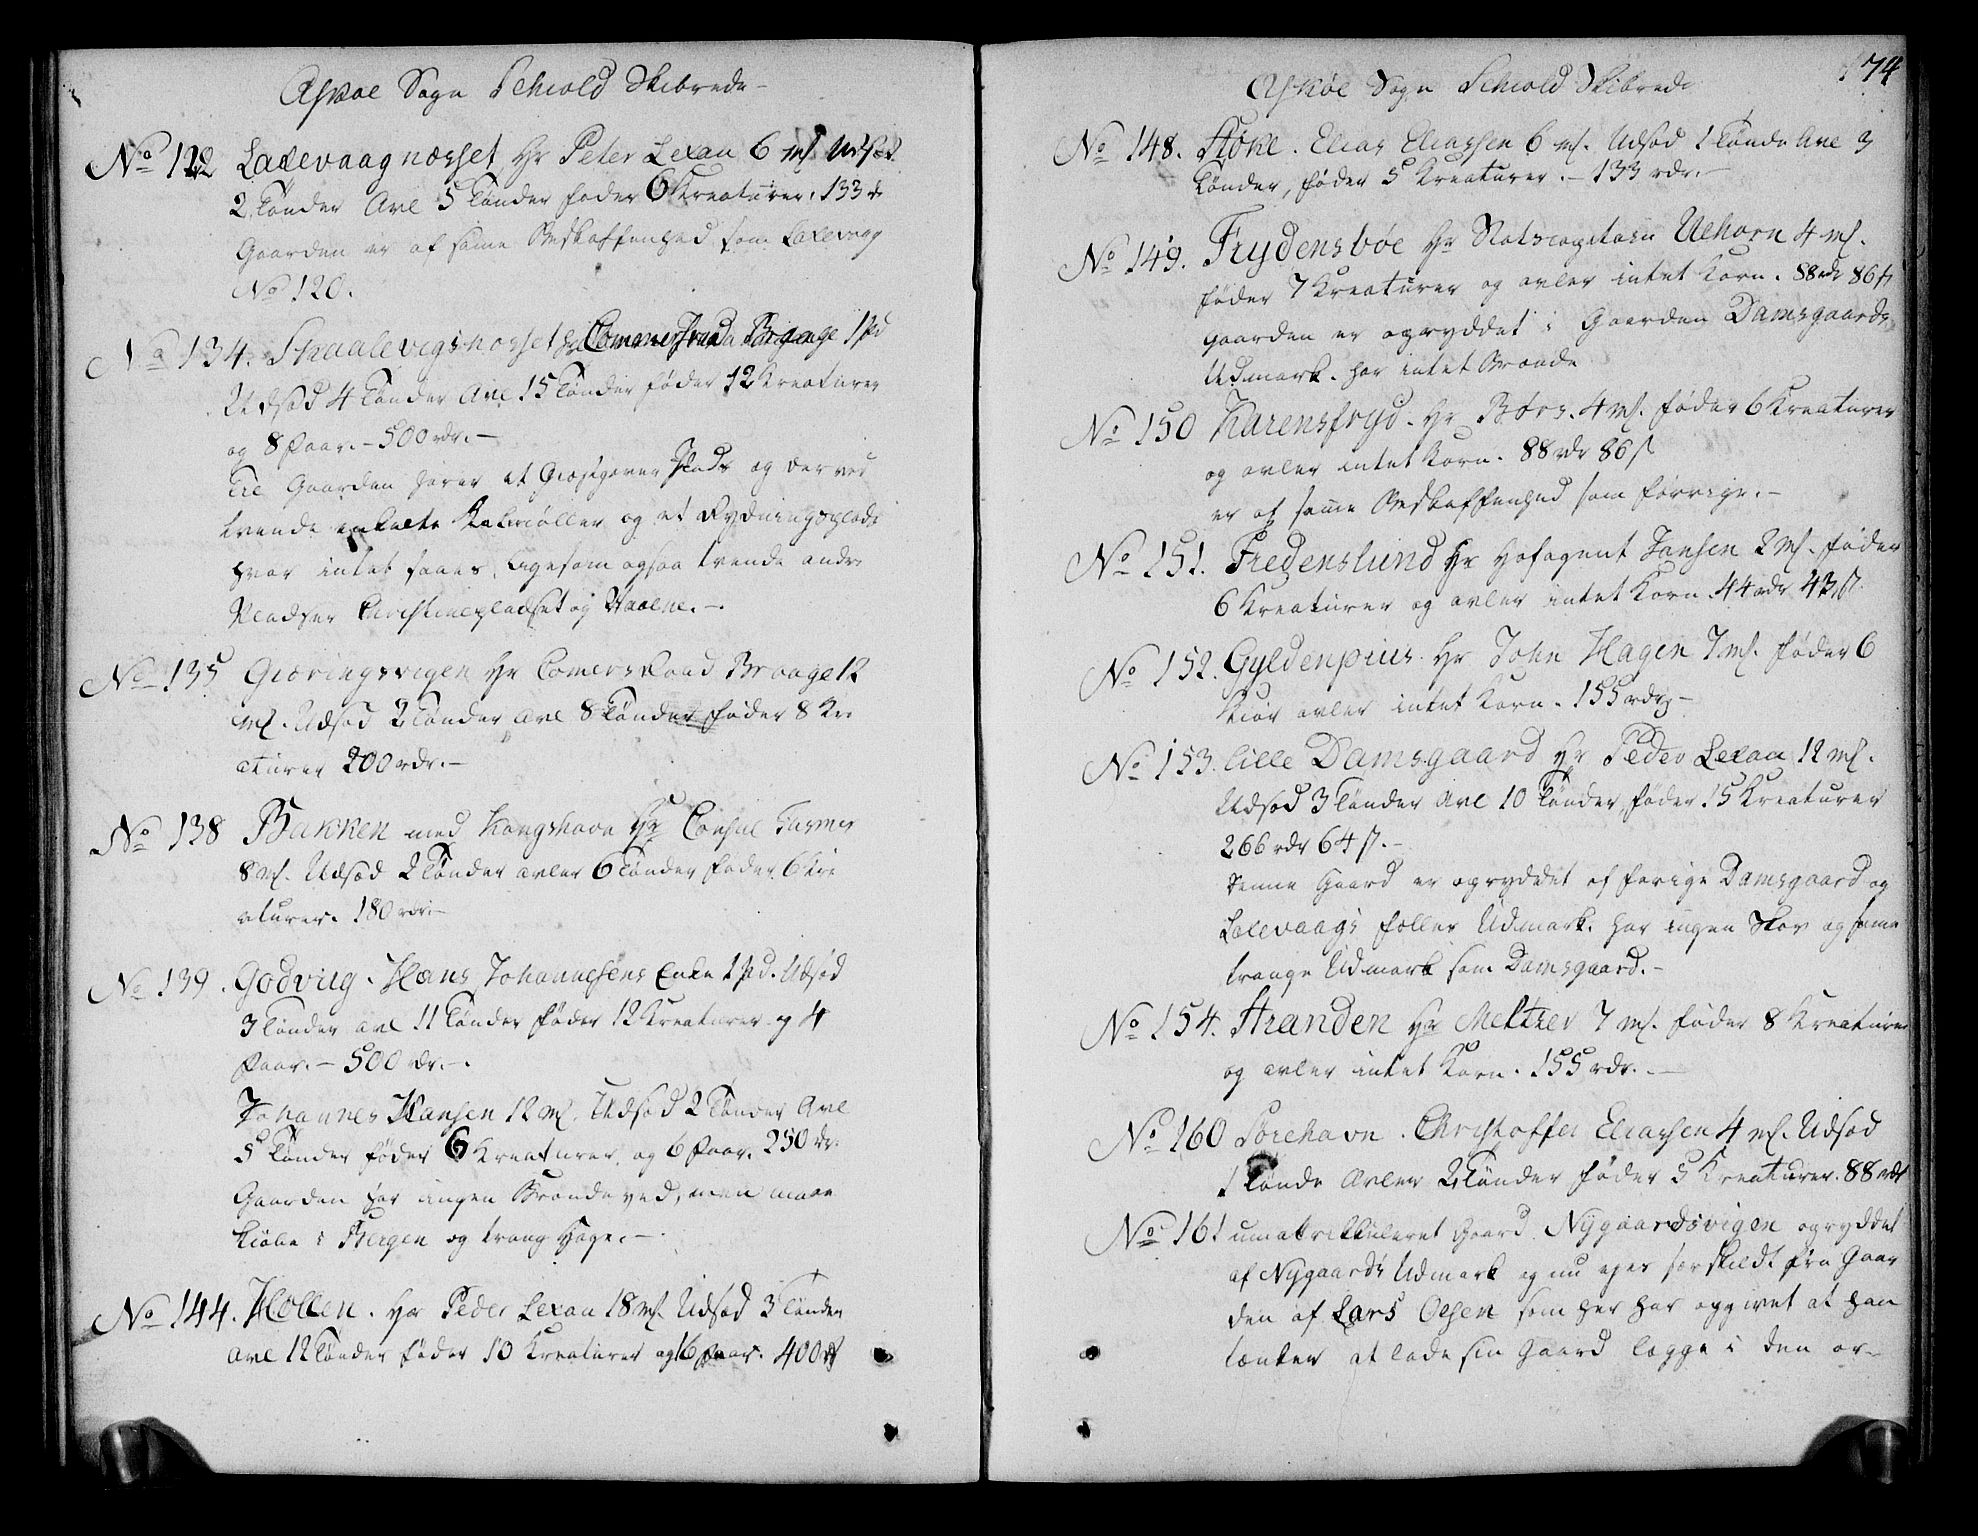 Askøe Sogn Schiold Skibrede
No 122 Laxevaagnæsset Hr Peter Lexau 6 mf. Udsæd
2 Tønder Avl 5 Tønder føder 6 Kreaturer. 133 rd
Gaarden er af samme Beskaffenhed som Laxevaag
No 120.
No 134. Skaalevigsnæsset Hr Commerseraad Brygge 1 Pd
Udsæd 4 Tønder Avl 15 Tønder føder 12 Kreaturer
og 8 Faar. - 500 rdr. -
Til Gaarden hører et Giæstgiver Plads og der ved
tvende enkelte Møller og et Rydningsplads
hvor intet saaes, ligesom ogsaa tvende andre
Pladser Christinepladset og
No 135 Giæringsvigen Hr Comerseraad Brygge 12
mf. Udsæd 2 Tønder Avl 8 Tønder føder 8 Kre
aturer 200 rdr. -
No 138 Bakken med Kongshavn Hr Consul
8 mf. Udsæd 2 Tønder avler 6 Tønder føder 6 Kre
aturer. 180 rdr. -
No 139. Godvig. Hans Johannesens Enke 1 Pd. Udsæd
3 Tønder avl 11 Tønder føder 12 Kreaturer og 4
Faar. - 500 rdr. -.
Johannes Hansen 12 mf. Udsæd 2 Tønder Avl
5 Tønder føder 6 Kreaturer og 6 Faar. 250 rdr.
Gaarden har ingen Brændeved, men maae
kiøbe i Bergen og trang Hage. -
No 144. Hollen. Hr Peder Lexau 18 mf. Udsæd 3 Tønder
Avl 12 Tønder føder 10 Kreaturer og 16 Faar. 400 rd
174
Askøe Sogn Schiold Skibrede
No 148. Støhe. Elias Eliassen 6 mf. Udsæd 1 Tønde Avl 3
Tønder, føder 5 Kreaturer. - 133 rdr. -
No 149. Frydensbøe Hr Stadscapitain Ulhorn 4 mf.
føder 7 Kreaturer og avler intet Korn. 88 rdr 86 ß
Gaarden er opryddet i Gaarden Damsgaards
Udmark. har intet Brænde
No 150 Karensfryd. Hr Børs. 4 mf. føder 6 Kreaturer
og avler intet Korn. 88 rdr 86 ß
er af samme Beskaffenhed som forrige. -
No 151. Fredenslund Hr Hofagent Jansen 2 mf. føder
6 Kreaturer og avler intet Korn. 44 rdr 43 ß.
No 152. Gyldenpriis. Hr John Hagen 7 mf. føder 6
Kiør avler intet Korn. 155 rdr -
No 153. Lille Damsgaard Hr Peder Lexau 12 mf.
Udsæd 3 Tønder Avl 10 Tønder, føder 15 Kreaturer
266 rdr 64 ß. -
Denne Gaard er opryddet af forrige Damsgaard og
Laxevaags fælles Udmark. har ingen Skov og samme
trange Udmark som Damsgaard. -
No 154. Stranden Hr Meltzer 7 mf. føder 8 Kreaturer
og avler intet Korn. 155 rdr. -
No 160 Sørehavn. Christoffer Eliassen 4 mf. Udsæd
1 Tønde Avler 2 Tønder føder 5 Kreaturer. 88 rdr
No 161 umatrikkuleret Gaard Nygaardsvigen opryddet
af Nygaards Udmark og nu ejes særskildt fra Gaar
den af Lars Olsen som her har opgivet at han
tænker at lade sin Gaard lægge i den or-